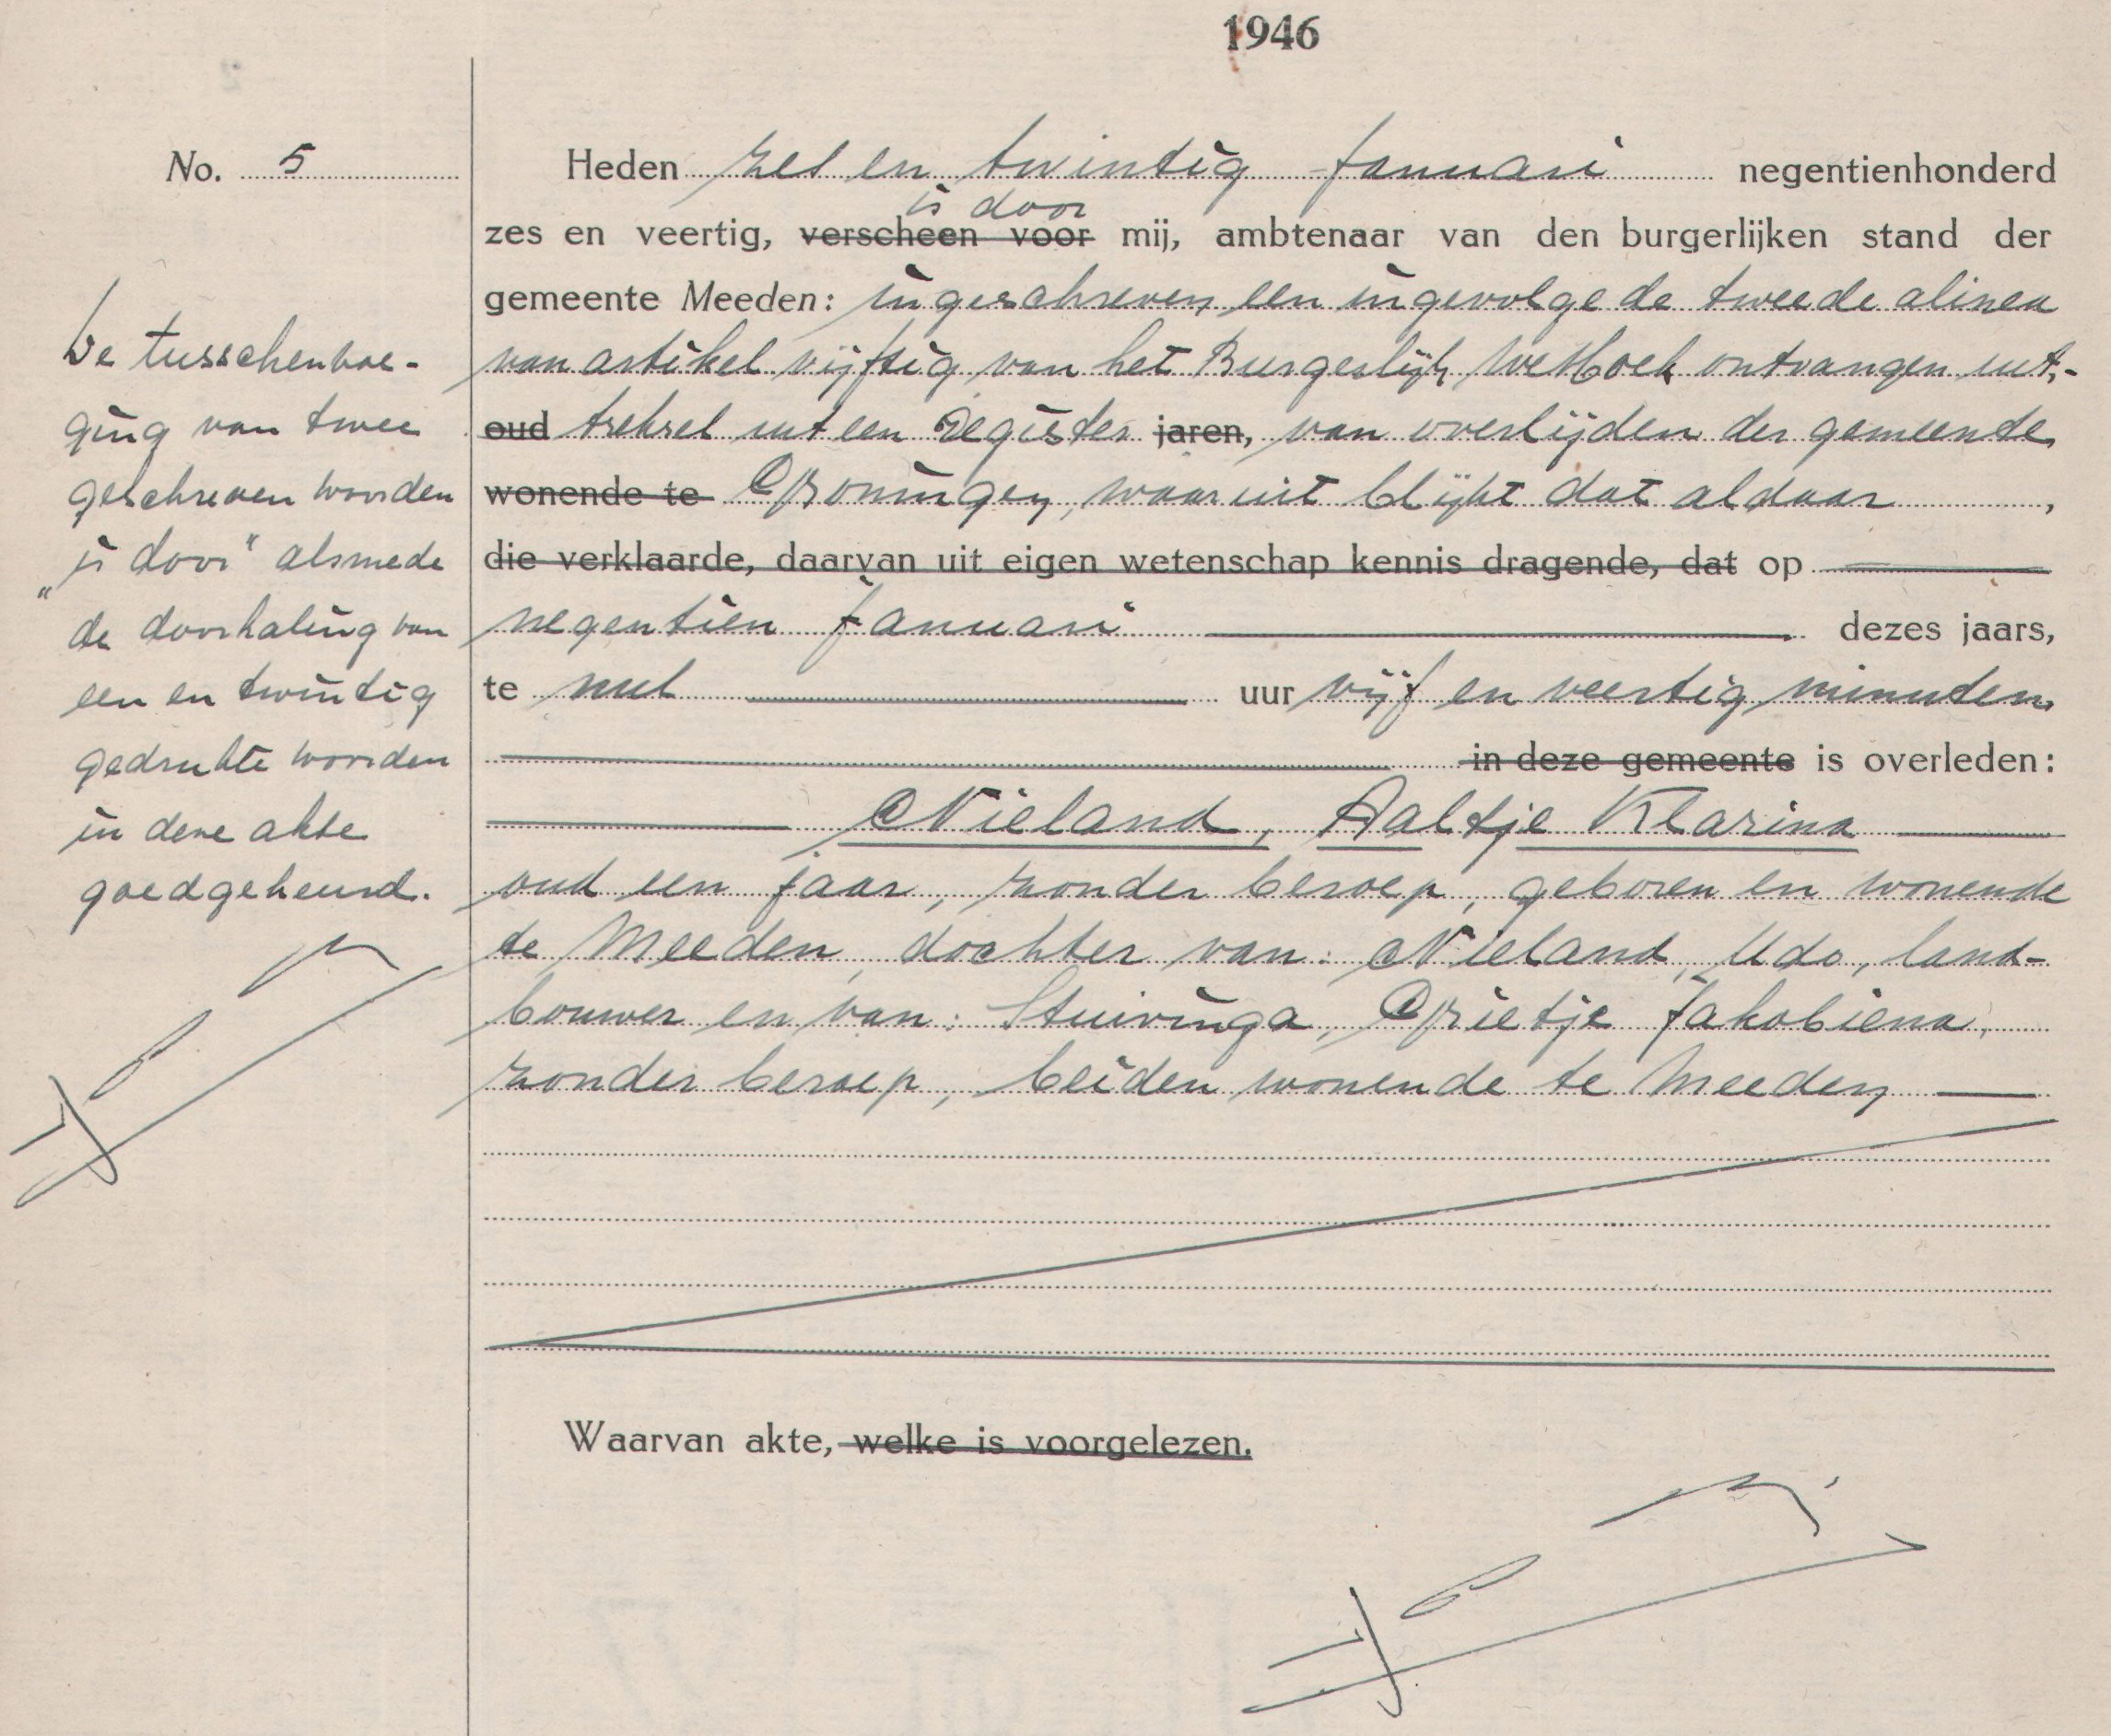 1946
No. 5
Heden zes en twintig Januari negentienhonderd
is door
zes en veertig, verscheen voor mij, ambtenaar van den burgerlijken stand der
gemeente Meeden: ingeschreven een ingevolge de tweede alinea
van artikel vijftig van het Burgerlijk Wetboek ontvangen uit-
oud treksel uit een register jaren, van overlijden der gemeente
wonende te Groningen, waaruit blijkt dat aldaar,
die verklaarde, daarvan uit eigen wetenschap kennis dragende, dat op
negentien Januari dezes jaars,
te nul uur vijf en veertig minuten
in deze gemeente is overleden:
Nieland, Aaltje Klarina
oud een jaar, zonder beroep, geboren en wonende
te Meeden, dochter van: Nieland, Udo, land-
bouwer en van: Stuivinga, Grietje Jakobiena,
zonder beroep, beiden wonende te Meeden
Waarvan akte, welke is voorgelezen.
De tusschenvoe-
ging van twee
geschreven woorden
„is door" alsmede
de doorhaling van
een en twintig
gedrukte woorden
in deze akte
goedgekeurd.